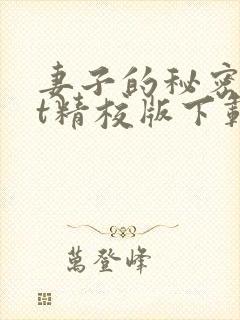 妻子的秘密
t精校版下載
萬登峰